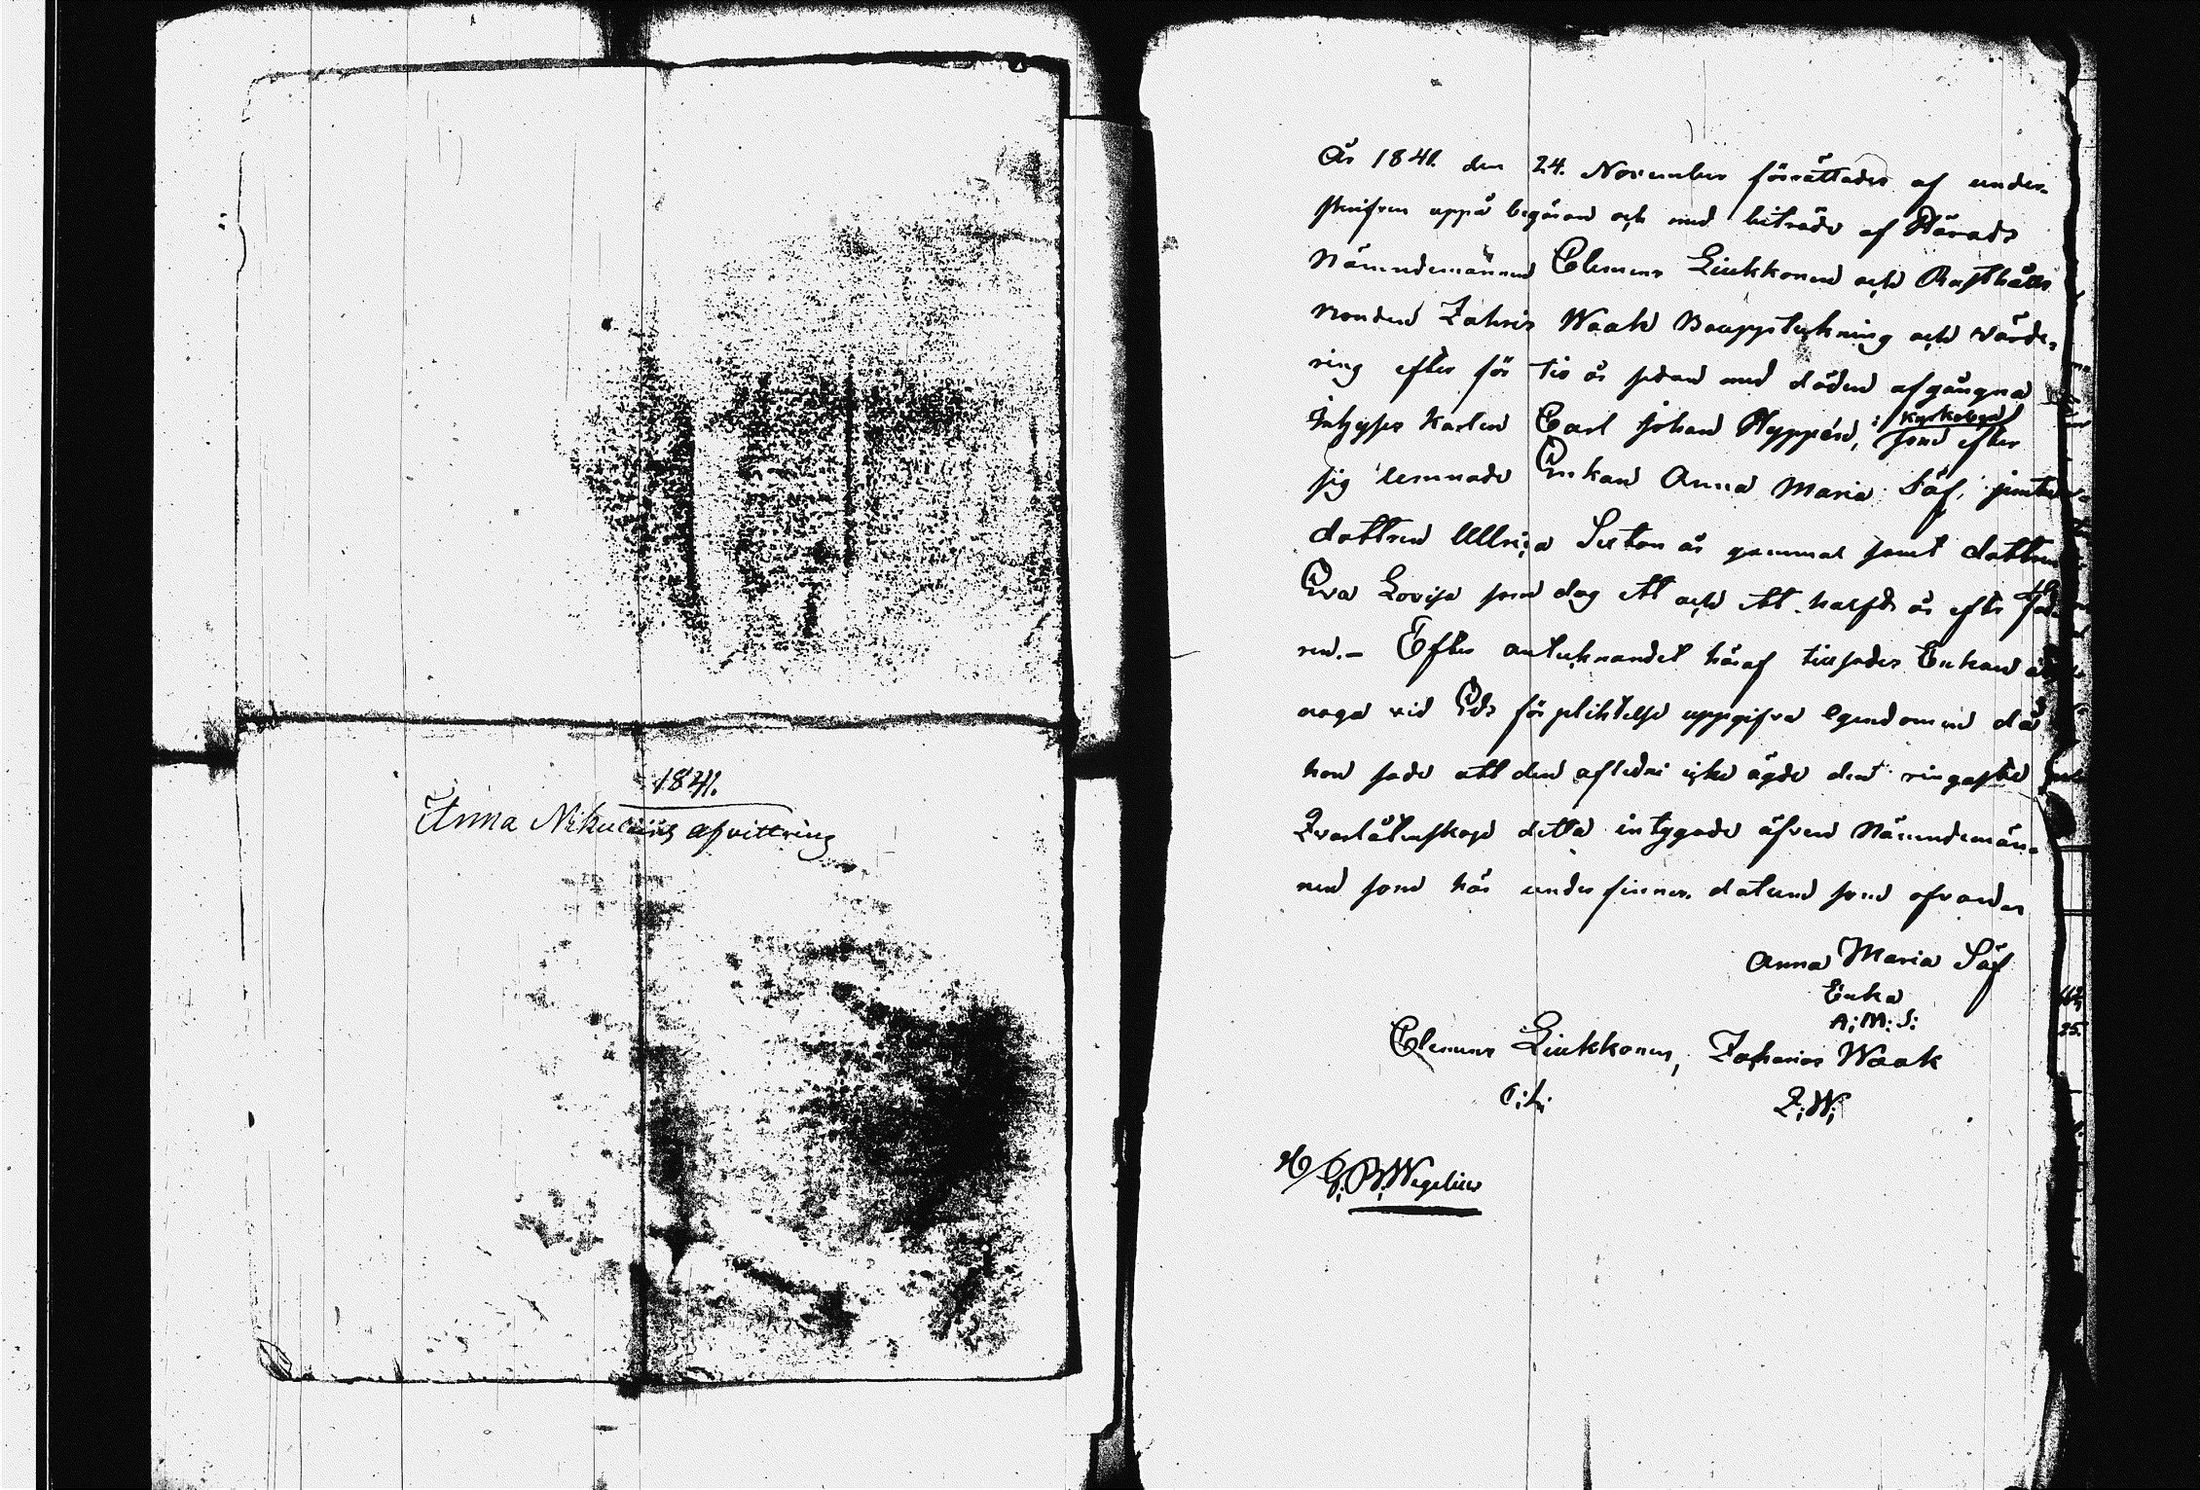 1841.
Anna Nikulains afvittring
År 1841. den 24. November förrättades af under-
skrifven uppå begäran och med biträde af Härads
Nämndemannen Clemens Liukkonen och Rusthålls
bonden Zakris Waak Bouppteckning och värde-
ring efter för tio år sedan med döden afgångna
Inhyses Karlen Carl Johan Hyppén, i Kyrkobyn som efter
sig lemnade Enkan Anna Maria Säf,
dottren Ullrica Sexton år gammal samt dottren
Eva Lovisa som dog ett och ett halft år efter
ren.- Efter antecknandet häraf tillsades Enkan
noga vid Eds förpliktelse uppgifva egendomen då
hon sade att den aflidne icke ägde den ringaste
Qvarlåtenskap detta intygade äfven Nämndemän-
nen som här underfinnes. datum som ofvan
Anna Maria Säf
Enka
A: M: S:
Clemens Liukkonen, Zacharias Waak
C: L: Z: W:
Wegelius